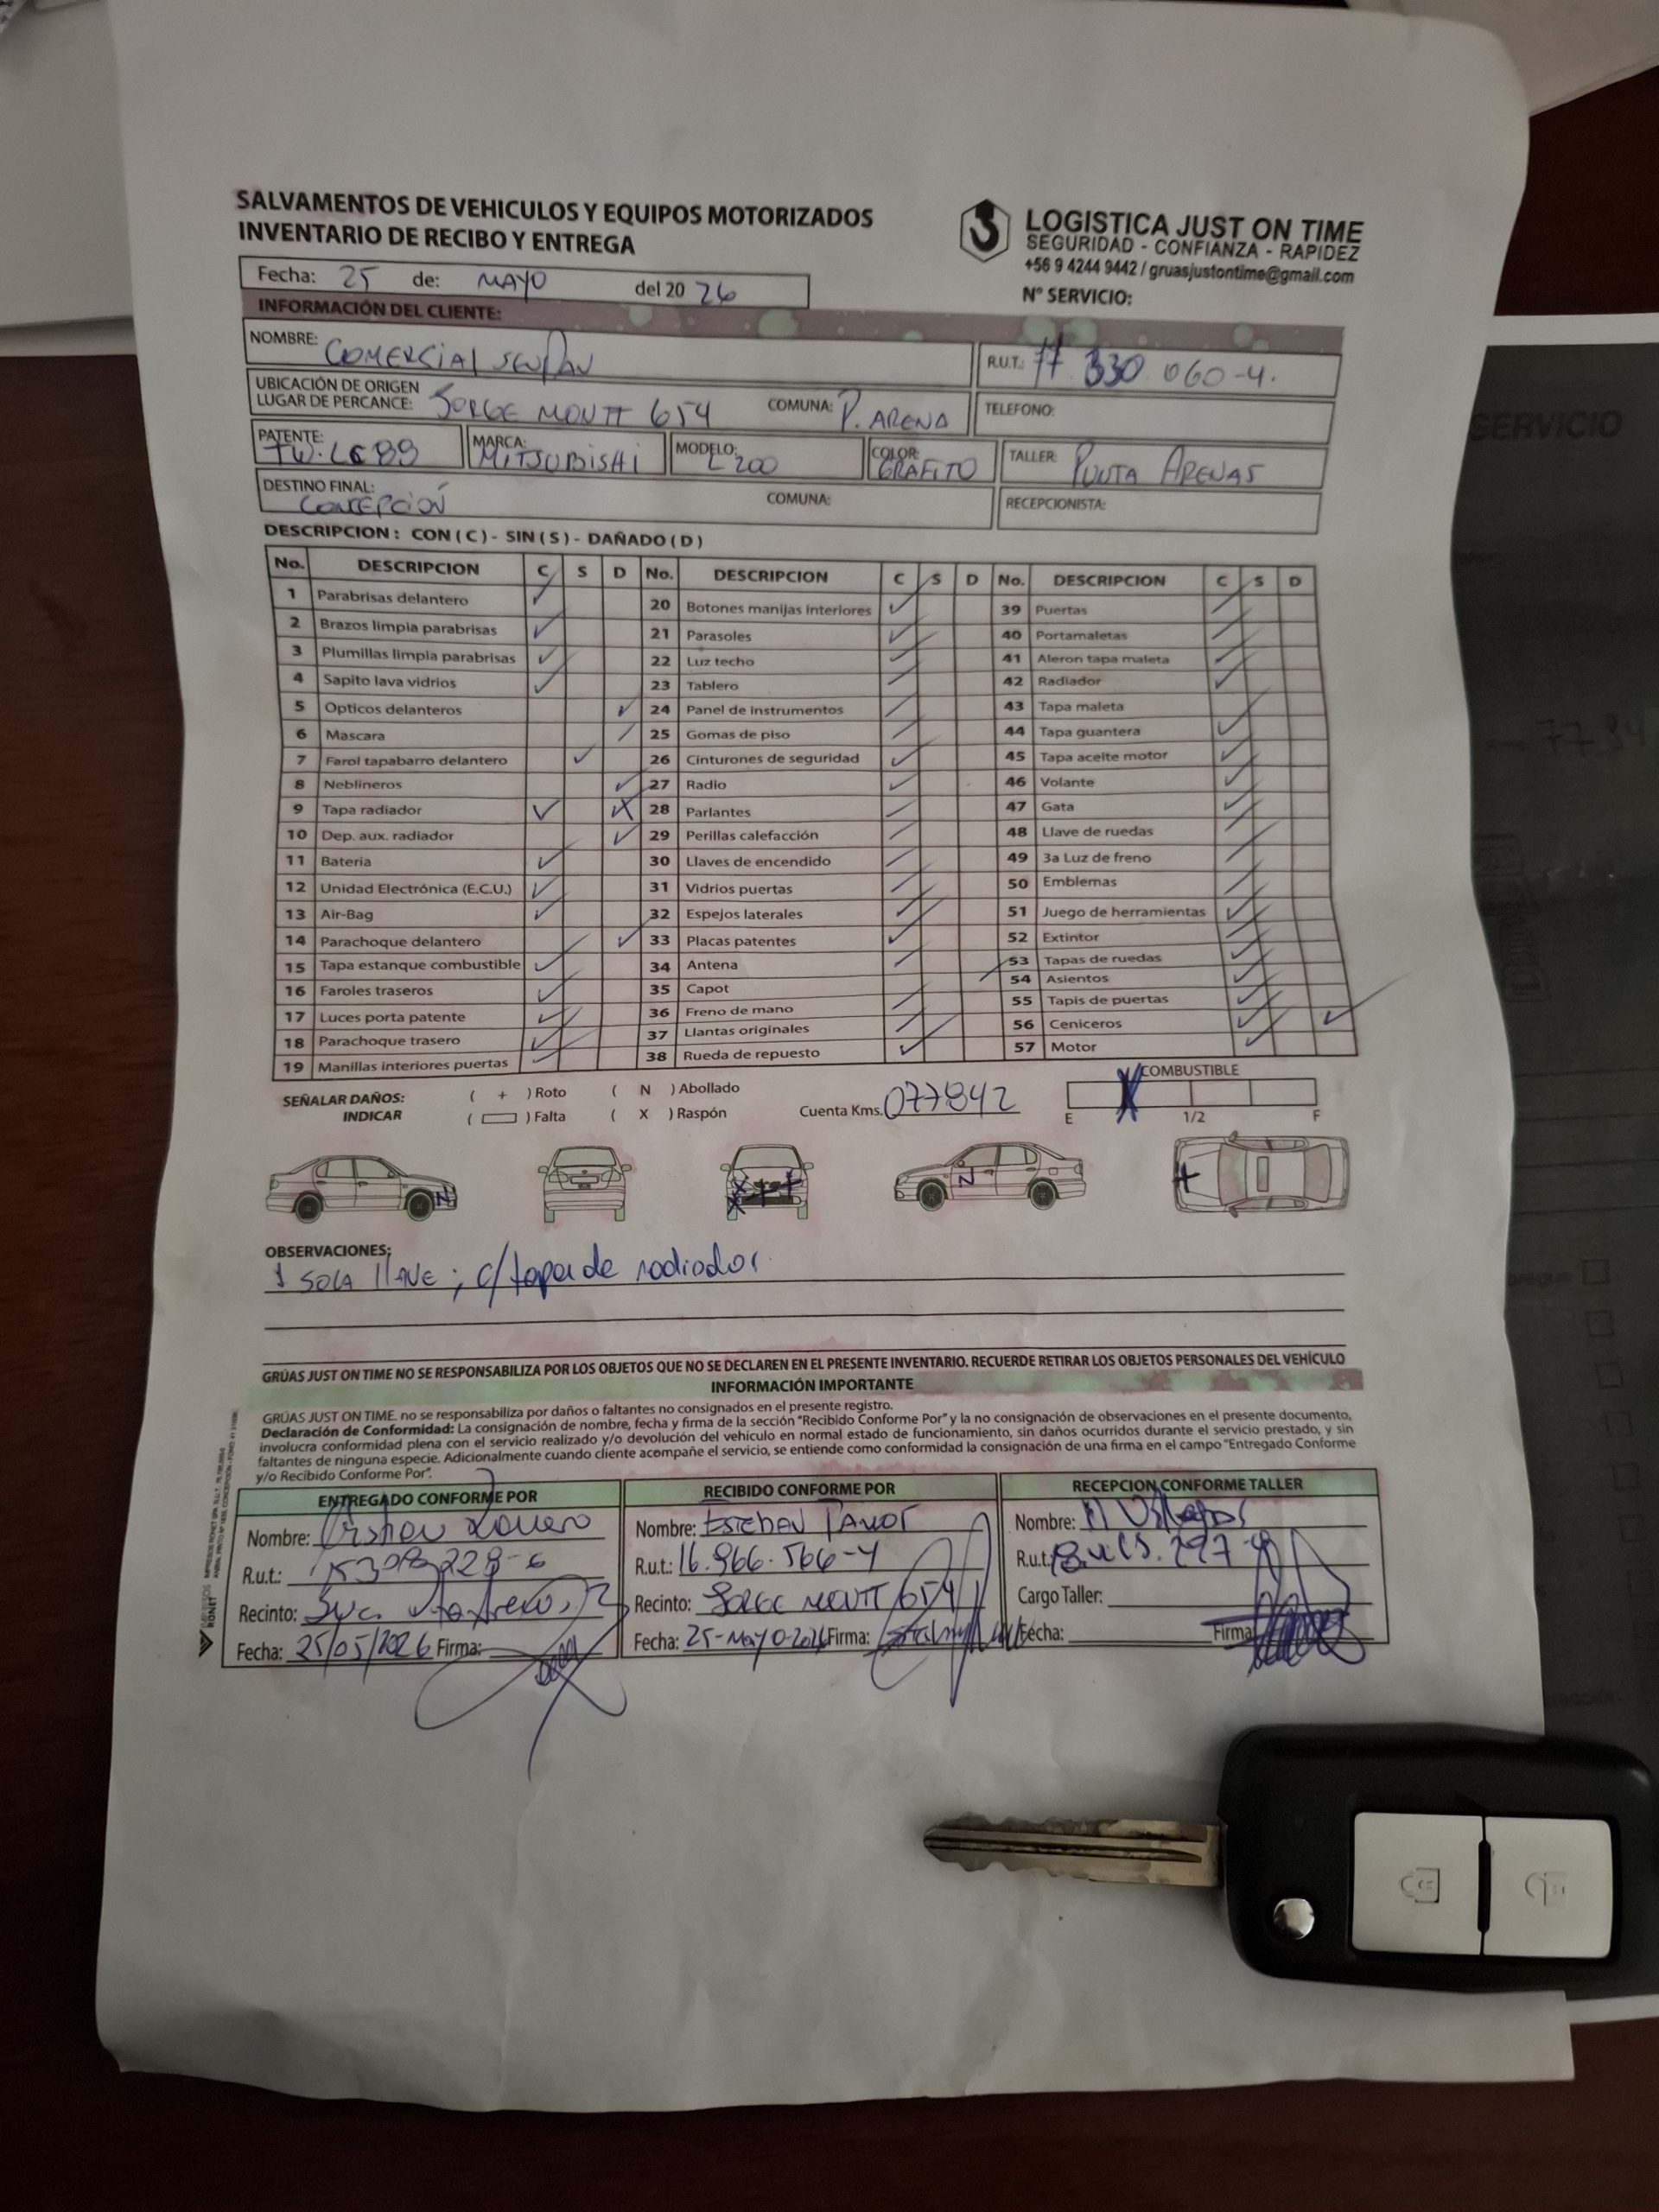 SALVAMENTOS DE VEHICULOS Y EQUIPOS MOTORIZADOS
INVENTARIO DE RECIBO Y ENTREGA
LOGISTICA JUST ON TIME
SEGURIDAD - CONFIANZA - RAPIDEZ
+56 9 4244 9442 / gruasjustontime@gmail.com
Nº SERVICIO:
Fecha: 25 de: MAYO del 20 26
INFORMACIÓN DEL CLIENTE:
NOMBRE: COMERCIAL R.U.T.: 77.330.060-4.
UBICACIÓN DE ORIGEN
LUGAR DE PERCANCE: JORGE MONTT 654 COMUNA: P. ARENA TELEFONO:
PATENTE: MARCA: MITSUBISHI MODELO: L200 COLOR: GRAFITO TALLER: PUNTA ARENAS
DESTINO FINAL: CONCEPCIÓN COMUNA: RECEPCIONISTA:
DESCRIPCION : CON ( C ) - SIN ( S ) - DAÑADO ( D )
No. DESCRIPCION C S D No. DESCRIPCION C S D No. DESCRIPCION C S D
1 Parabrisas delantero 20 Botones manijas interiores 39 Puertas
2 Brazos limpia parabrisas 21 Parasoles 40 Portamaletas
3 Plumillas limpia parabrisas 22 Luz techo 41 Aleron tapa maleta
4 Sapito lava vidrios 23 Tablero 42 Radiador
5 Opticos delanteros 24 Panel de instrumentos 43 Tapa maleta
6 Mascara 25 Gomas de piso 44 Tapa guantera
7 Farol tapabarro delantero 26 Cinturones de seguridad 45 Tapa aceite motor
8 Neblineros 27 Radio 46 Volante
9 Tapa radiador 28 Parlantes 47 Gata
10 Dep. aux. radiador 29 Perillas calefacción 48 Llave de ruedas
11 Bateria 30 Llaves de encendido 49 3a Luz de freno
12 Unidad Electrónica (E.C.U.) 31 Vidrios puertas 50 Emblemas
13 Air-Bag 32 Espejos laterales 51 Juego de herramientas
14 Parachoque delantero 33 Placas patentes 52 Extintor
15 Tapa estanque combustible 34 Antena 53 Tapas de ruedas
16 Faroles traseros 35 Capot 54 Asientos
17 Luces porta patente 36 Freno de mano 55 Tapis de puertas
18 Parachoque trasero 37 Llantas originales 56 Ceniceros
19 Manillas interiores puertas 38 Rueda de repuesto 57 Motor
SEÑALAR DAÑOS: ( + ) Roto ( N ) Abollado COMBUSTIBLE
INDICAR ( ) Falta ( X ) Raspón Cuenta Kms. 077842 E 1/2 F
OBSERVACIONES:
1 SOLA llAVE ; c/tapa de radiador
GRÚAS JUST ON TIME NO SE RESPONSABILIZA POR LOS OBJETOS QUE NO SE DECLAREN EN EL PRESENTE INVENTARIO. RECUERDE RETIRAR LOS OBJETOS PERSONALES DEL VEHÍCULO
INFORMACIÓN IMPORTANTE
GRÚAS JUST ON TIME. no se responsabiliza por daños o faltantes no consignados en el presente registro.
Declaración de Conformidad: La consignación de nombre, fecha y firma de la sección "Recibido Conforme Por" y la no consignación de observaciones en el presente documento,
involucra conformidad plena con el servicio realizado y/o devolución del vehículo en normal estado de funcionamiento, sin daños ocurridos durante el servicio prestado, y sin
faltantes de ninguna especie. Adicionalmente cuando cliente acompañe el servicio, se entiende como conformidad la consignación de una firma en el campo "Entregado Conforme
y/o Recibido Conforme Por".
ENTREGADO CONFORME POR RECIBIDO CONFORME POR RECEPCION CONFORME TALLER
Nombre: Nombre: ESTEBAN Nombre:
R.u.t.: R.u.t.: 16.966.566-4 R.u.t.:
Recinto: Recinto: JORGE MONTT 654 Cargo Taller:
Fecha: 25/05/2026 Firma: Fecha: 25-MAYO-2026 Firma: Fecha: Firma:
SERVICIO